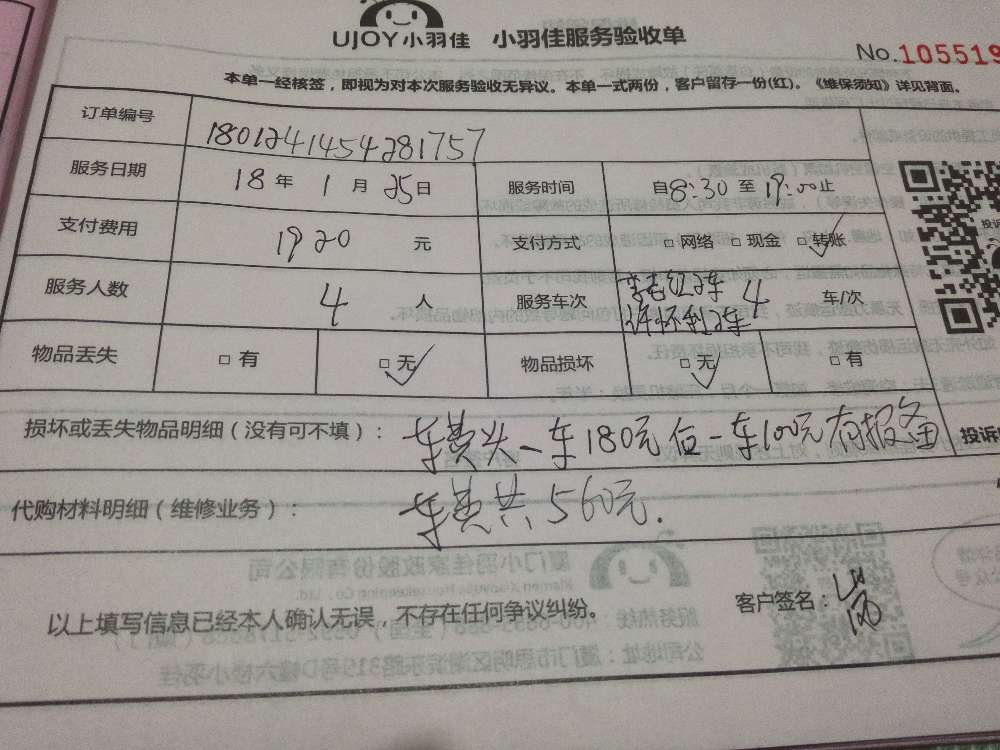 UJOY小羽佳 小羽佳服务验收单
No.105519
本单一经核签，即视为对本次服务验收无异议。本单一式两份，客户留存一份(红)。《维保须知》详见背面。
订单编号 18012414542817​57
服务日期 18年1月25日 服务时间 自8:30至19:00止
支付费用 1920元 支付方式 □网络 □现金 □转账
服务人数 4人 服务车次 李志红2车 许怀利2车 4 车/次
物品丢失 □有 □无 物品损坏 □无 □有
损坏或丢失物品明细（没有可不填）： 车费头一车180元后一车100元有报备
投诉
代购材料明细（维修业务）： 车费共560元.
以上填写信息已经本人确认无误，不存在任何争议纠纷。
客户签名：